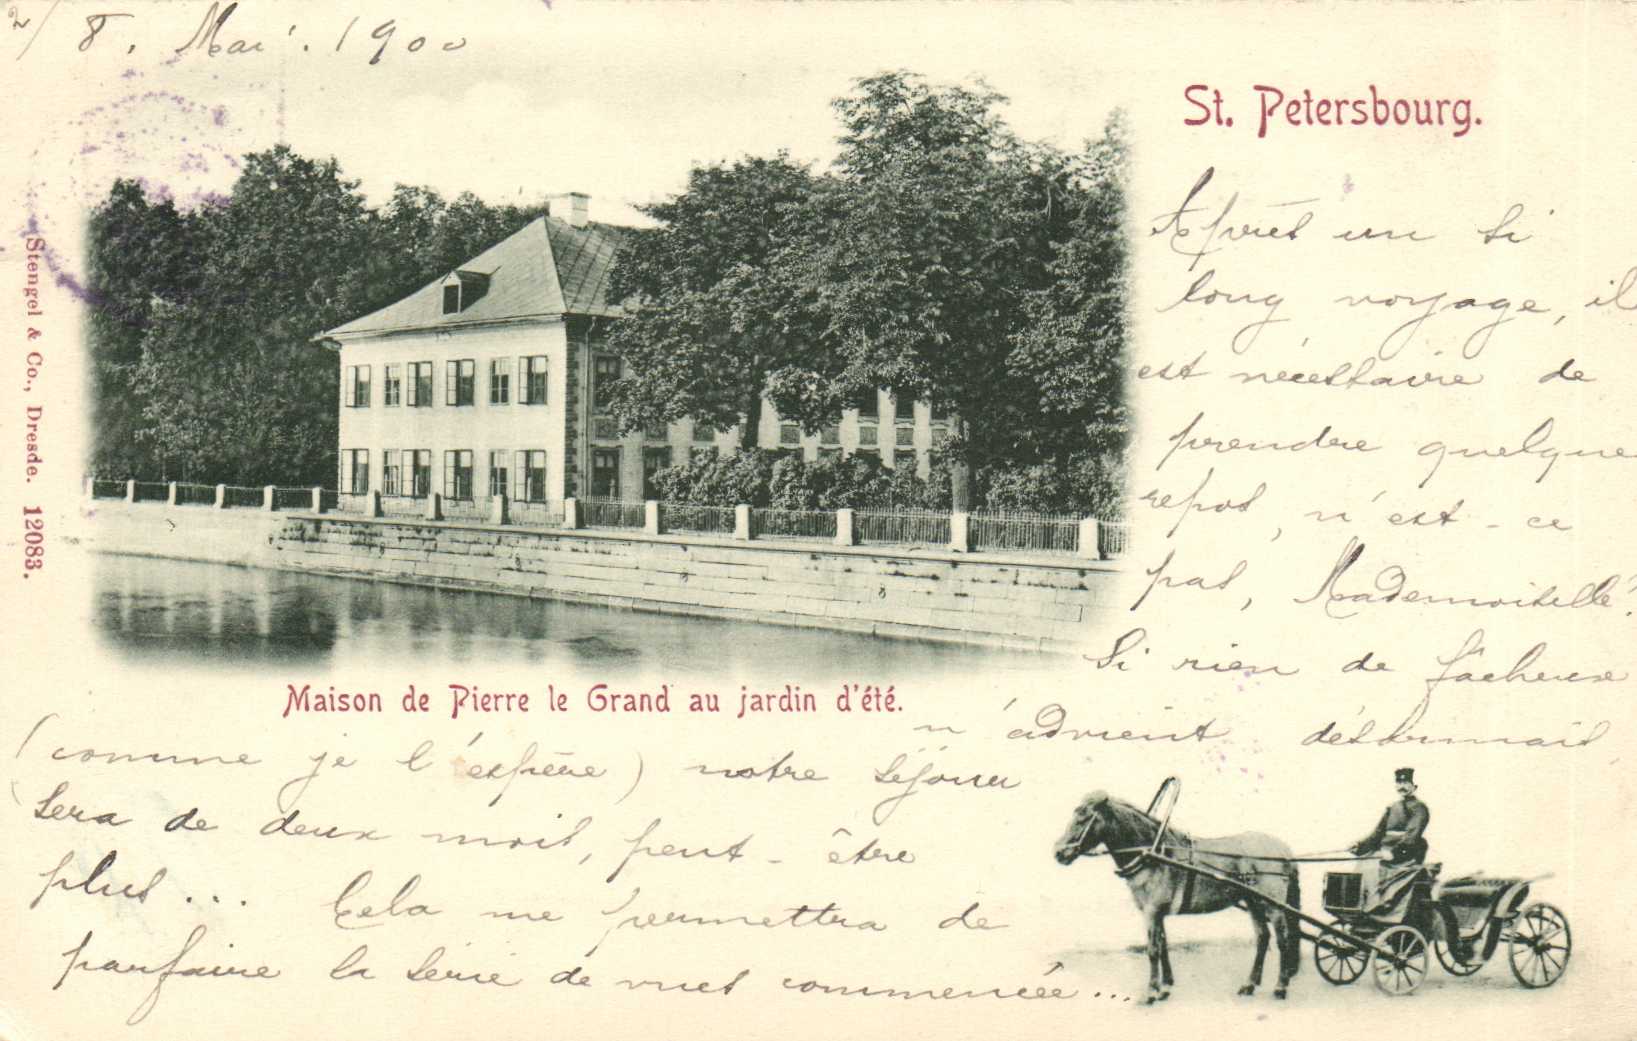 2/ 8. Mai. 1900
St. Petersbourg.
Après un si
long voyage, il
est nécessaire de
prendre quelque
repos, n'est-ce
pas, Mademoiselle?
Si rien de fâcheux
n'advient désormais
Maison de Pierre le Grand au jardin d'été.
(comme je l'espère) notre séjour
sera de deux mois, peut-être
plus... Cela me permettra de
parfaire la série de vues commencée...
Stengel & Co., Dresde. 12083.